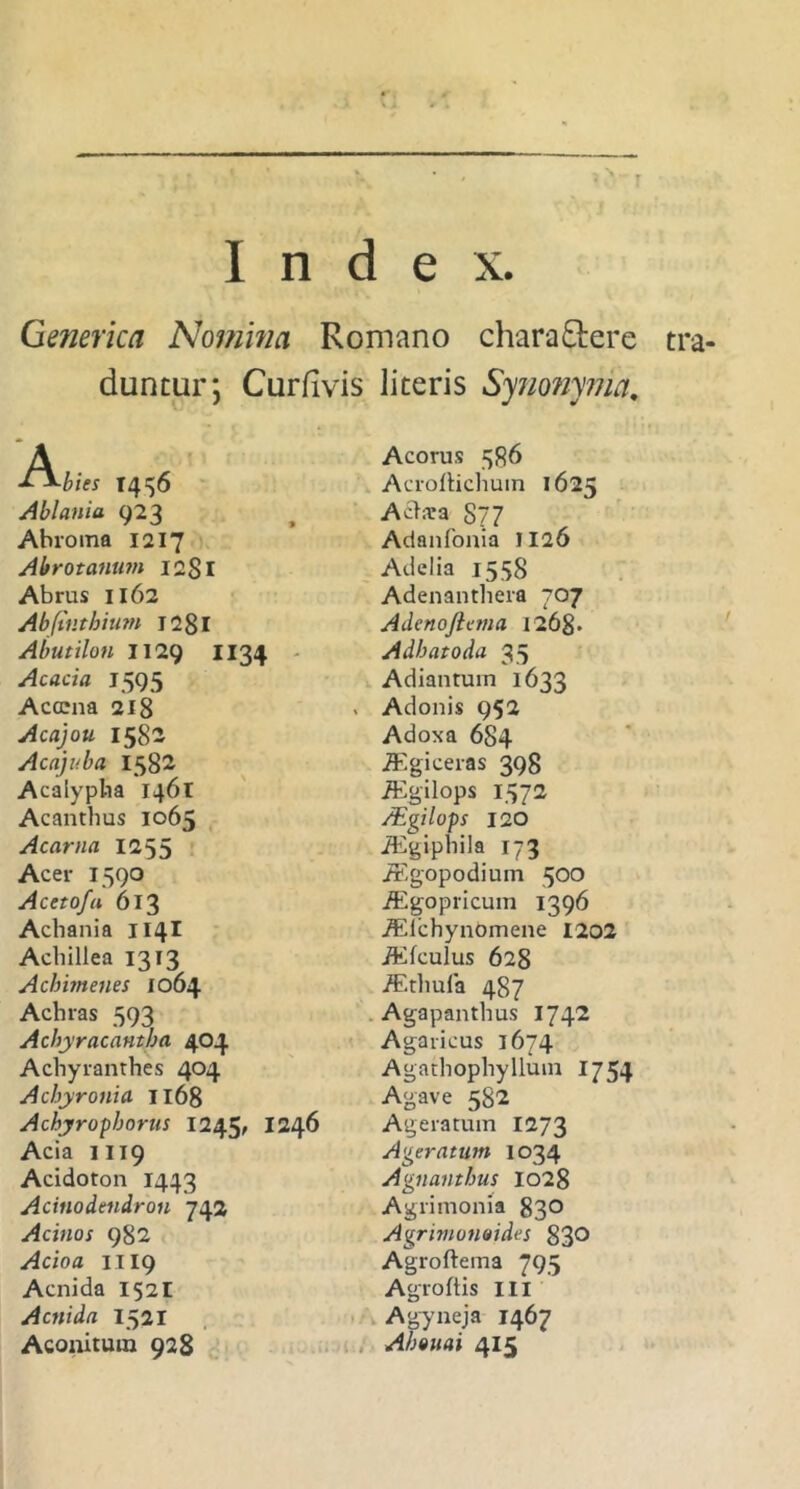 Index.
Generica Nomina Romano charactere tra-
duntur; Curſivis literis Synonyma.
Abies 1456
Ablania 923
Abroma 1217
Abrotanum 1281
Abrus 1162
Abſinthium 1281
Abutilon 1129 1134
Acacia 1595
Acœna 218
Acajou 1582
Acajuba 1582
Acalypha 1461
Acanthus 1065
Acarna 1255
Acer 1590
Acetoſa 613
Achania 1141
Achillea 1313
Achimenes 1064
Achras 593
Achyracantha 404
Achyranthes 404
Achyronia 1168
Achyrophorus 1245, 1246
Acia 1119
Acidoton 1443
Acinodendron 742
Acinos 982
Acioa 1119
Acnida 1521
Acnida 1521
Aconitum 928
Acorus 586
Acroſtichum 1625
Actæa 877
Adanſonia 1126
Adelia 1558
Adenanthera 707
Adenoſtema 1268.
Adhatoda 35
Adiantum 1633
Adonis 952
Adoxa 684
Ægiceras 398
Ægilops 1572
Ægilops 120
Ægiphila 173
Ægopodium 500
Ægopricum 1396
Æſchynomene 1202
Æſculus 628
Æthuſa 487
Agapanthus 1742
Agaricus 1674
Agathophyllum 1754
Agave 582
Ageratum 1273
Ageratum 1034
Agnanthus 1028
Agrimonia 830
Agrimonoides 830
Agroſtema 795
Agroſtis 111
Agyneja 1467
Ahouai 415